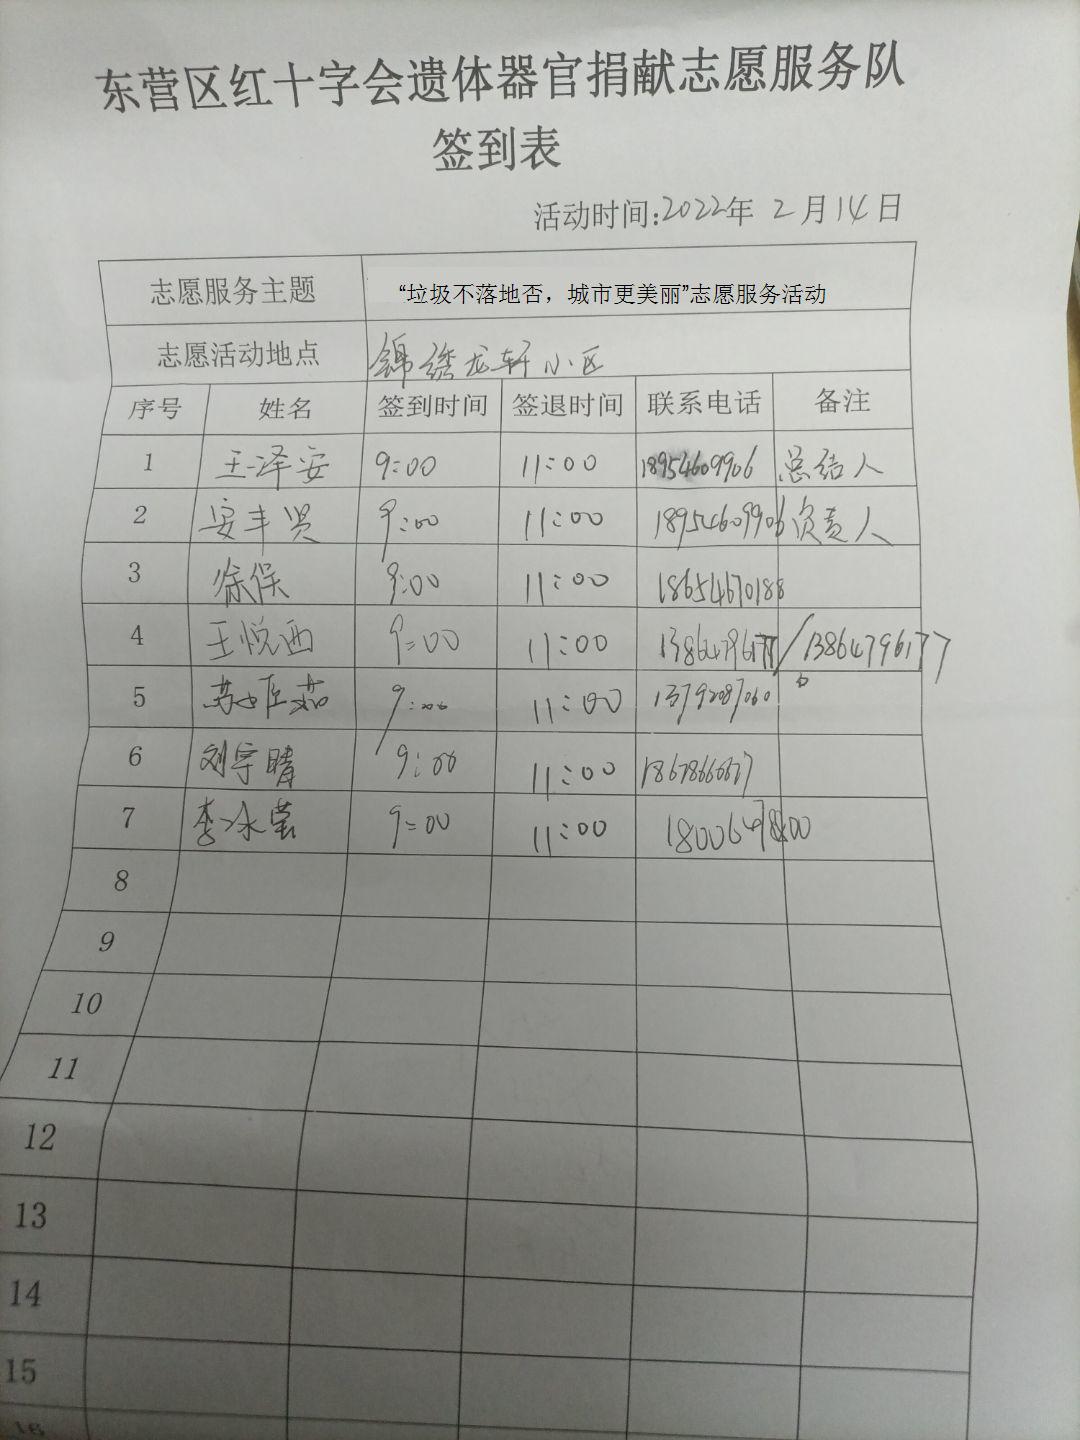 东营区红十字会遗体器官捐献志愿服务队
签到表
活动时间:2022年 2月14日
志愿服务主题 “垃圾不落地否，城市更美丽”志愿服务活动
志愿活动地点 锦绣龙轩小区
序号 姓名 签到时间 签退时间 联系电话 备注
1 王泽安 9:00 11:00 18954609906 总结人
2 安丰贤 9:00 11:00 18954609906 负责人
3 徐俣 9:00 11:00 18654670188
4 王悦西 9:00 11:00 13864796177 / 13864796177
5 9:00 11:00 13792087060
6 刘宇晴 9:00 11:00 18678666677
7 李冰莹 9:00 11:00 18006478800
8
9
10
11
12
13
14
15
16